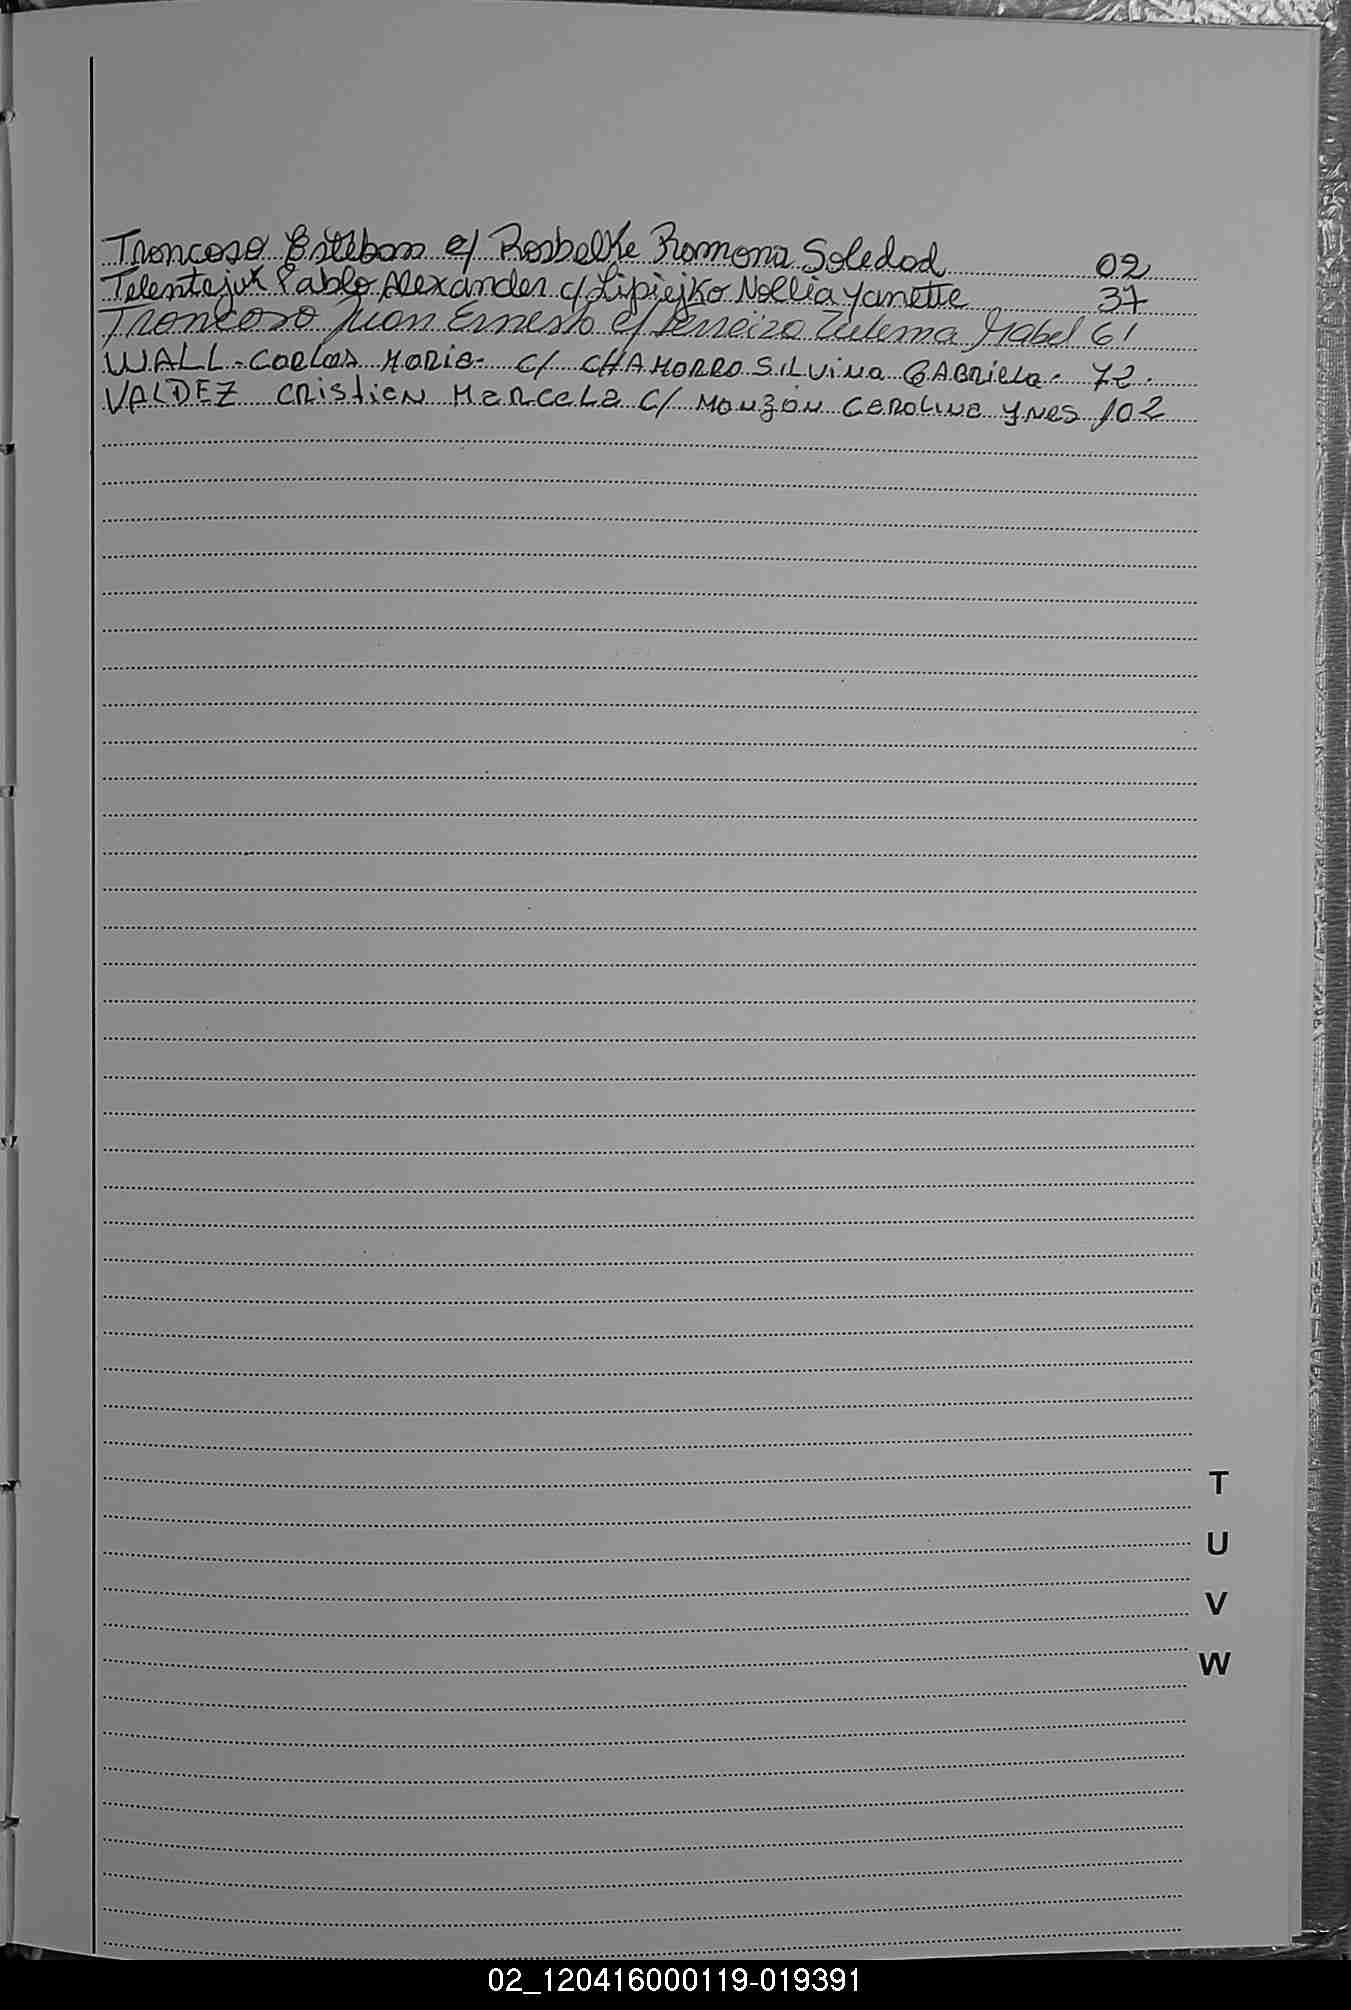 Troncoso Esteban c/ Rosbelke Romona Soledad 02
Pablo Alexander c/ Lipiejko Noelia Yanette 37
Troncoso Juan Ernesto c/ Ferreira Zulema Mabel 61
WALL - Carlos Mario - c/ CHAMORRO SILVINA GABRIELA - 72.
VALDEZ CRISTIAN MARCELA c/ MONZÓN CAROLINA YNES 102
T
U
V
W
02_120416000119-019391